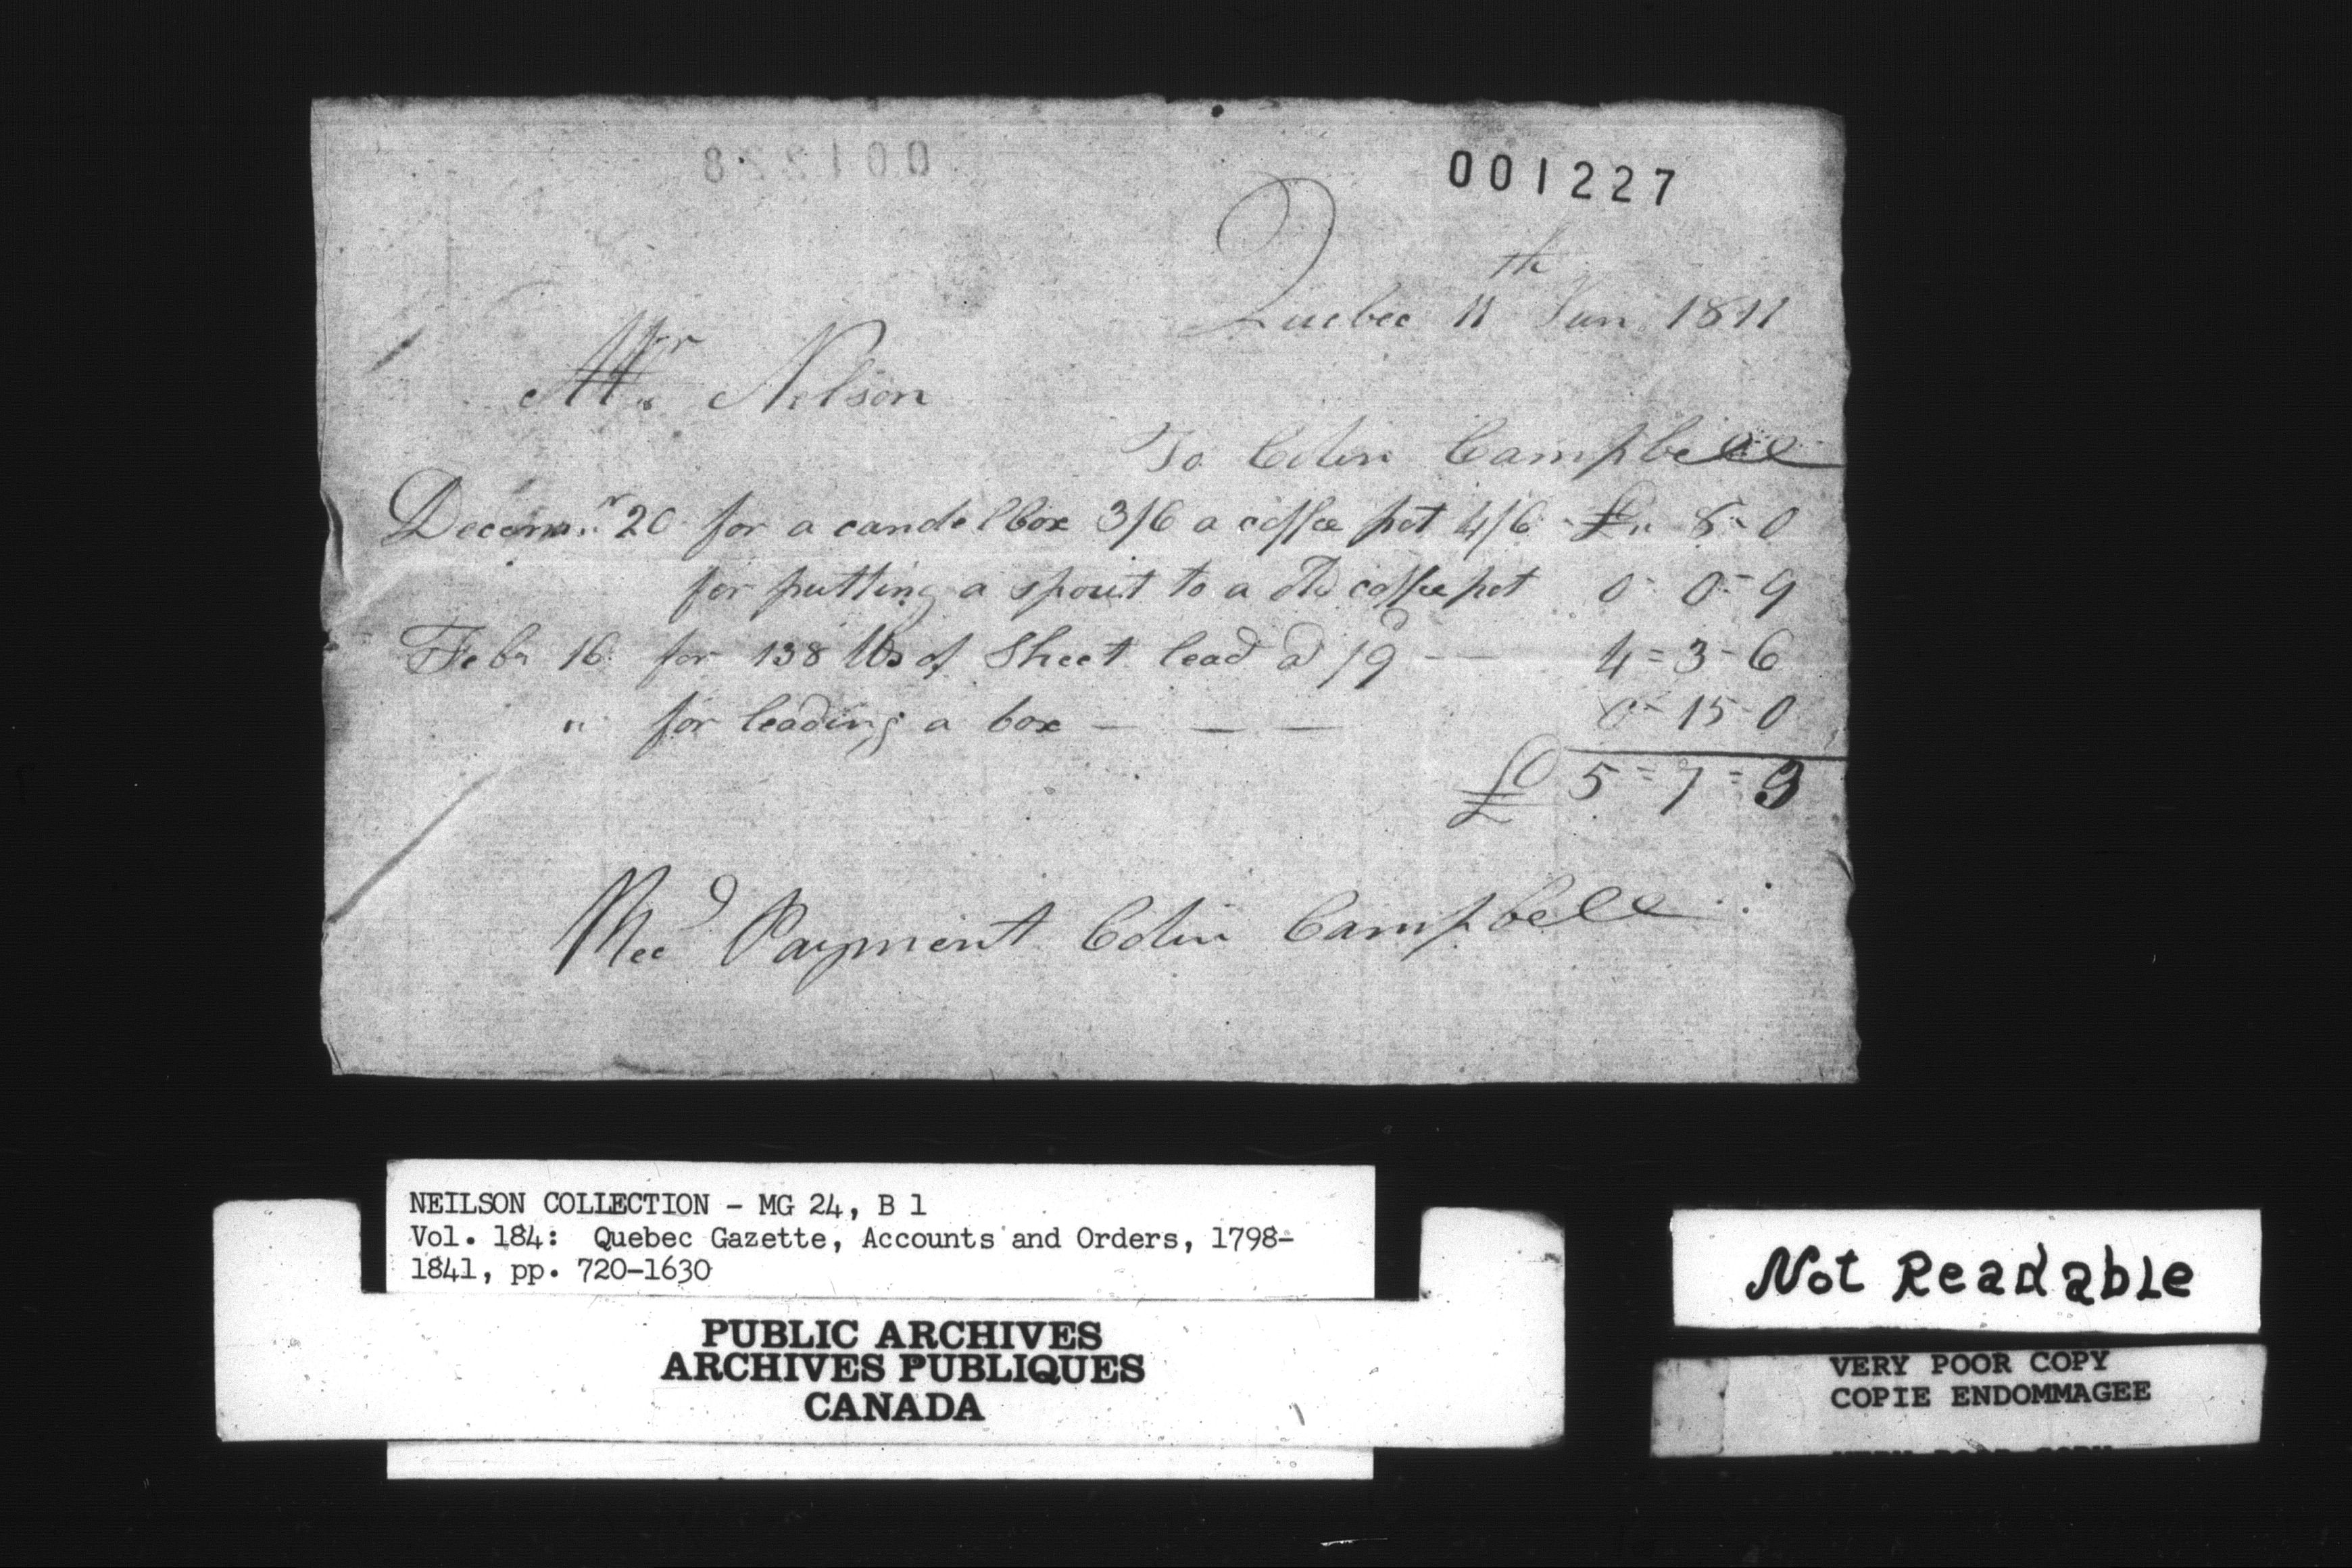 001228
001227
Quebec 11th Jun 1811
Mr Nelson
To Colin Campbell
Decemr 20 for a candelbox 3/6 a coffee pot 4/6 £" 8-0
for putting a spout to a old coffee pot 0-0-9
Febr 16 for 138 lbs of Sheet lead a /9d -- 4=3-6
" for leading a box — — — 0-15-0
£ 5=7=3
Recd Payment Colin Campbell
NEILSON COLLECTION - MG 24, B 1
Vol. 184: Quebec Gazette, Accounts and Orders, 1798-
1841, pp. 720-1630
PUBLIC ARCHIVES
ARCHIVES PUBLIQUES
CANADA
Not Readable
VERY POOR COPY
COPIE ENDOMMAGEE
VERY POOR COPY